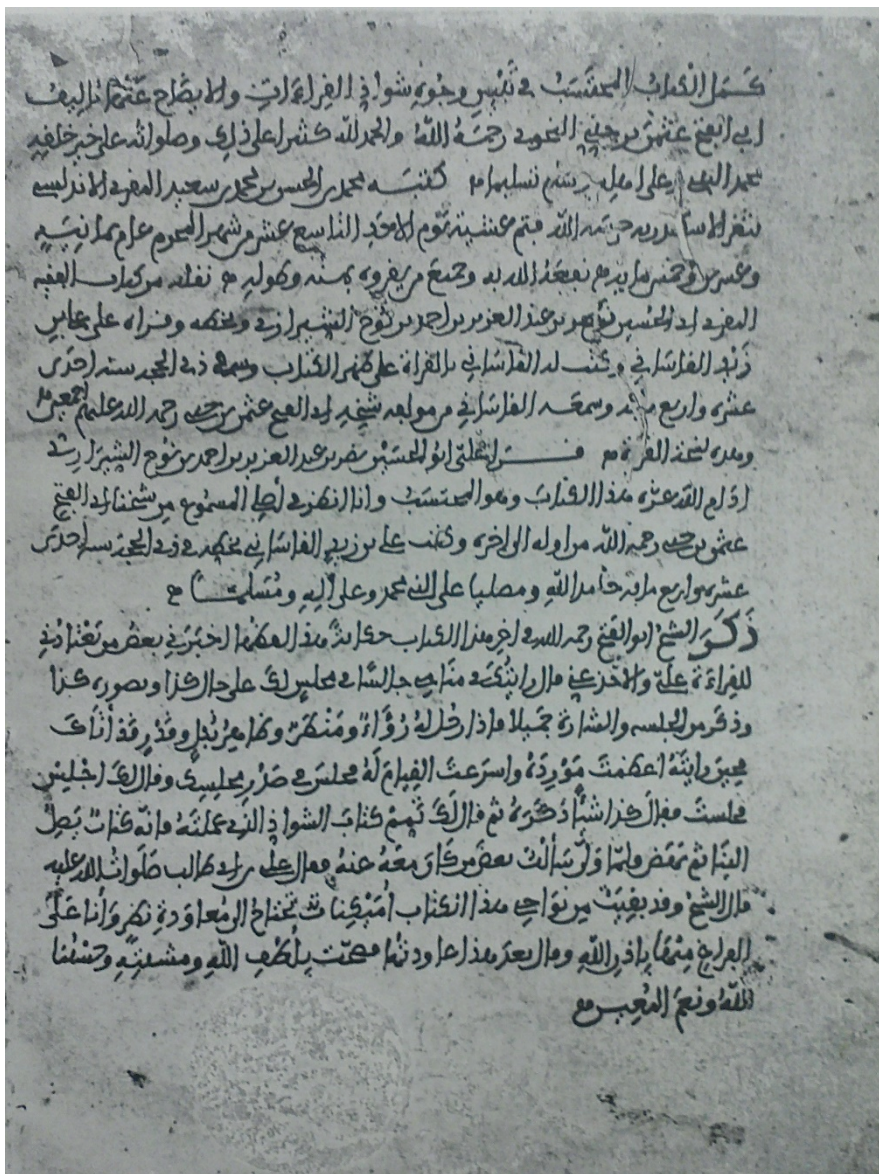 كَمَل الكتابُ المحتسَبُ في تَبْيينِ وجُوهِ شَوَاذِّ القراءَاتِ والايضاح عنها تاليف
ابى الفتح عثمٰن بن جني النحوي رحمَهُ اللّٰهُ والحمد لله كثيرا على ذلك وصلواته على خير خلقه
محمد النبى وعلى اهله وسَلّم تسليما كتبَه محمد بن الحسن بن محمد بن سعيد المقرى الاندلسى
بثغر الاسكندرية حرسه اللّه فتم عشية يَوْم الاحَد التاسع عشر من شهر المحرم عام ثمانيةٍ
وعشرين وخمس ماية نفعَهُ الله به وجميع من يقروه بمنه وطوله نقله من كتاب الفقيه
المقرى ابى الحسين نصر بن عبد العزيز بن احمد بن نُوح الشيرازى وبخطه وقراه على على بن
زَيْد القاسَاني وكتب له القاسَاني بالقراة على ظهر الكتاب وسمعه في ذي الحجه سنه احدَى
عشرة واربع مئة وسمعَه القاسَاني من مولفه شيخه ابى الفتح عثمٰن بن جنى رحمة الله عليهم اجمعين
وهذه نسخة القراة قَرَأ علَيّ ابو الحسَيْن نصر بن عبد العزيز بن احمد بن نُوح الشيرازى
ادَام اللّه عزّه هذا الكتابَ وهو المحتسَب وانا انظر في أصلى المسمُوع من شيخنا ابى الفتح
عثمٰن بن جنى رحمه اللّه من اوله الى اخره وكتب على بن زيد القاسَاني بخطه في ذي الحجة سنة احدَى
عشرة واربع ماية حامدا للّٰهِ ومصليا على النبى محمد وعلى آلِهِ ومُسَلِّمًا
ذَكَرَ الشيخ ابو الفتح رحمه الله في اخر هذا الكتاب حكايةً هذا لفظها اخبرَني بعض من يَعْتادُني
للقراءَة عليّ والاخذ عني قال رايتُكَ في منامي جالسًا في مجلسٍ لك على حال كذا وبصورة كذا
وذكر من الجلسة والشارة جميلا فاذا رجُل لهُ رُوَاءٌ ومَنْظَرٌ وظاهرُ نُبْلٍ وقَدْرٍ قدْ أتاكَ
فحينَ رايتَهُ اعظمتَ مَوْرِدَهُ واسرَعتَ القيامَ لَهُ فجلسَ في صَدْرِ مجلسِكَ وقال لكَ اجْلِسْ
فجلستَ فقالَ كذا شيئًا ذكرَهُ ثم قال لَكَ تَمِّمْ كتابَ الشواذِّ الذي عملتَهُ فانّه كتابٌ يَصِلُ
الينا ثم نهَض فلمّا وَلّى سَألتُ بعضَ من كان معَهُ عنهُ فقال علي بن ابي طالب صَلَواتُ اللّهِ عليه
قال الشيخُ وقد بقيَتْ مِن نوَاحي هذا الكتاب أُمَيْكِنَاتٌ تحتاجُ الى مُعاوَدةِ نظرٍ وأنا على
الفراغِ مِنْها بإذنِ اللّٰهِ وقال بعدَ هذا عاودتُها فصحّت بلُطْفِ اللّٰهِ ومشِيئتِهِ وحَسْبُنا
اللّٰهُ ونعمَ المُعين